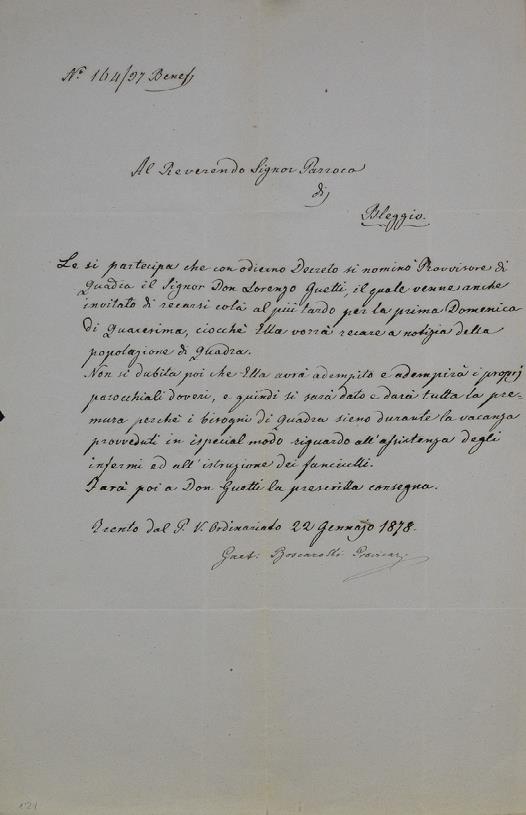 N.º 164/97 Benef.
Al Reverendo Signor Parroco
di
Bleggio.
Le si partecipa che con odierno Decreto si nominò Provvisore di
Quadra il Signor Don Lorenzo Guetti, il quale venne anche
invitato di recarsi colà al più tardo per la prima Domenica
di Quaresima, ciocchè Ella vorrà recare a notizia della
popolazione di Quadra.
Non si dubita poi che Ella avrà adempito e adempirà i proprj
parocchiali doveri, e quindi si sarà dato e darà tutta la pre-
mura perchè i bisogni di Quadra sieno durante la vacanza
provveduti in ispecial modo riguardo all'assistenza degli
infermi ed all'istruzione dei fanciulli.
Farà poi a Don Guetti la prescritta consegna.
Trento dal P. V. Ordinariato 22 Gennajo 1878.
Gaet. Boscarolli Provicar.
121